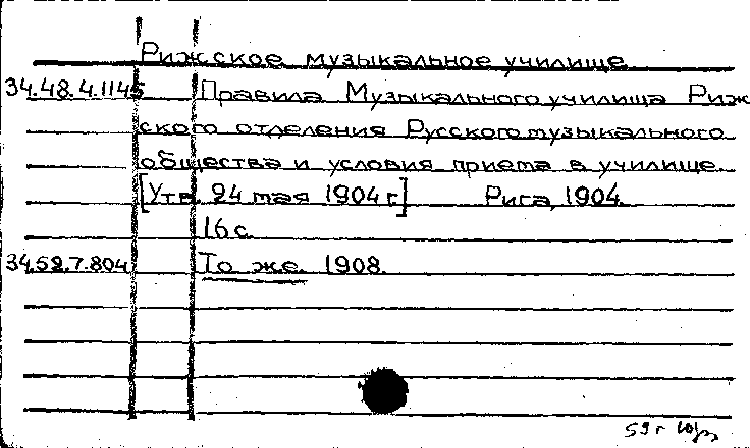 Рижское музыкальное училище
34.48.4.1145 Правила Музыкального училища Риж
ского отделения Русского музыкального
общества и условия приема в училище.
[Утв. 24 мая 1904 г.] Рига, 1904.
16 с.
34.52.7.804 То же. 1908.
59 г